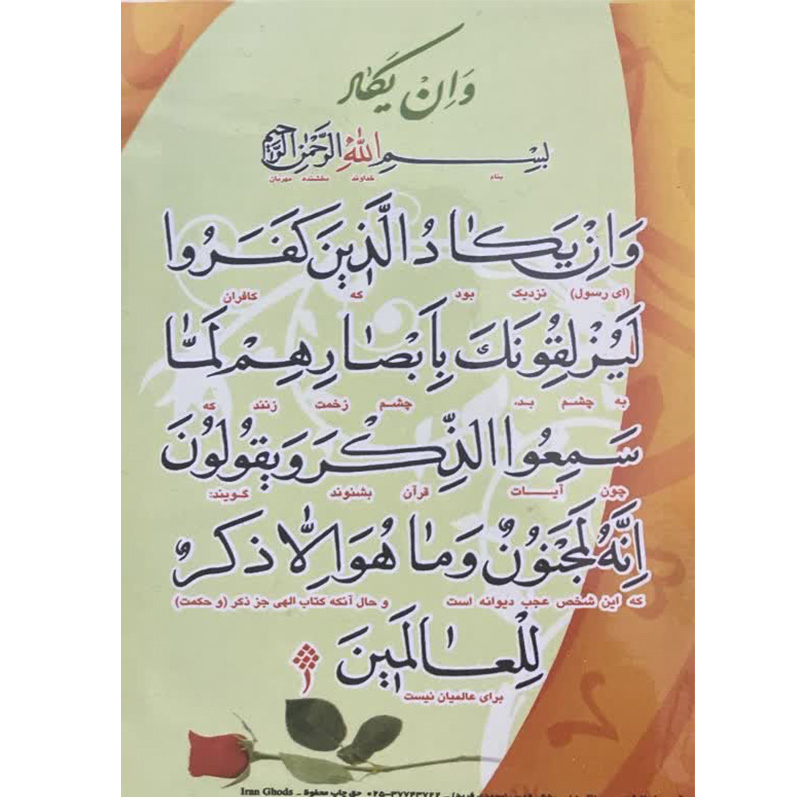 وَاِنْ يَكٰادُ
بِسْمِ اللّٰهِ الرَّحْمٰنِ الرَّحيمِ
بنام خداوند بخشنده مهربان
وَاِنْ يَكٰادُ الَّذينَ كَفَرُوا
(ای رسول) نزدیک بود که کافران
لَيُزْلِقُونَكَ بِاَبْصٰارِهِمْ لَمّٰا
به چشم بد، چشم زخمت زنند که
سَمِعُوا الذِّكْرَ وَيَقُولُونَ
چون آیات قرآن بشنوند گویند:
اِنَّهُ لَمَجْنُونٌ وَمٰا هُوَ اِلّٰا ذِكْرٌ
که این شخص عجب دیوانه است و حال آنکه کتاب الهی جز ذکر (و حکمت)
لِلْعٰالَمينَ
برای عالمیان نیست
۰۲۵-۳۷۷۴۳۷۲۲ حق چاپ محفوظ _ Iran Ghods